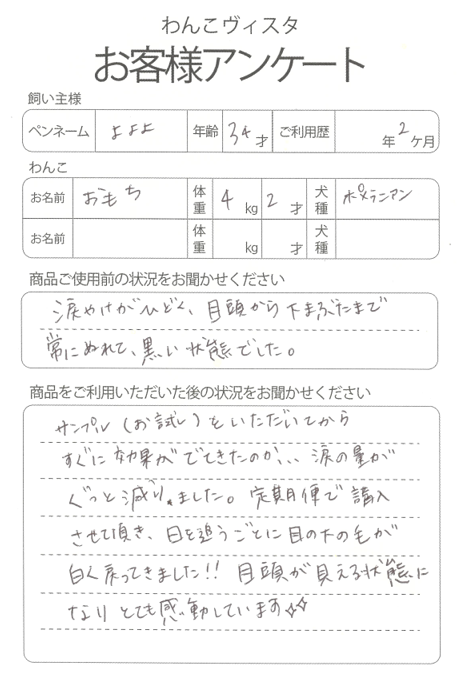 わんこヴィスタ
お客様アンケート
飼い主様
ペンネーム よよよ 年齢 34才 ご利用歴 年2ケ月
わんこ
お名前 おもち 体重 4kg 2才 犬種 ポメラニアン
お名前 体重 kg 才 犬種
商品ご使用前の状況をお聞かせください
涙やけがひどく、目頭から下まぶたまで
常にぬれて、黒い状態でした。
商品をご利用いただいた後の状況をお聞かせください
サンプル(お試し)をいただいてから
すぐに効果がでてきたのか、、涙の量が
ぐっと減りました。定期便で購入
させて頂き、日を追うごとに目の下の毛が
白く戻ってきました!! 目頭が見える状態に
なりとても感動しています✧✧